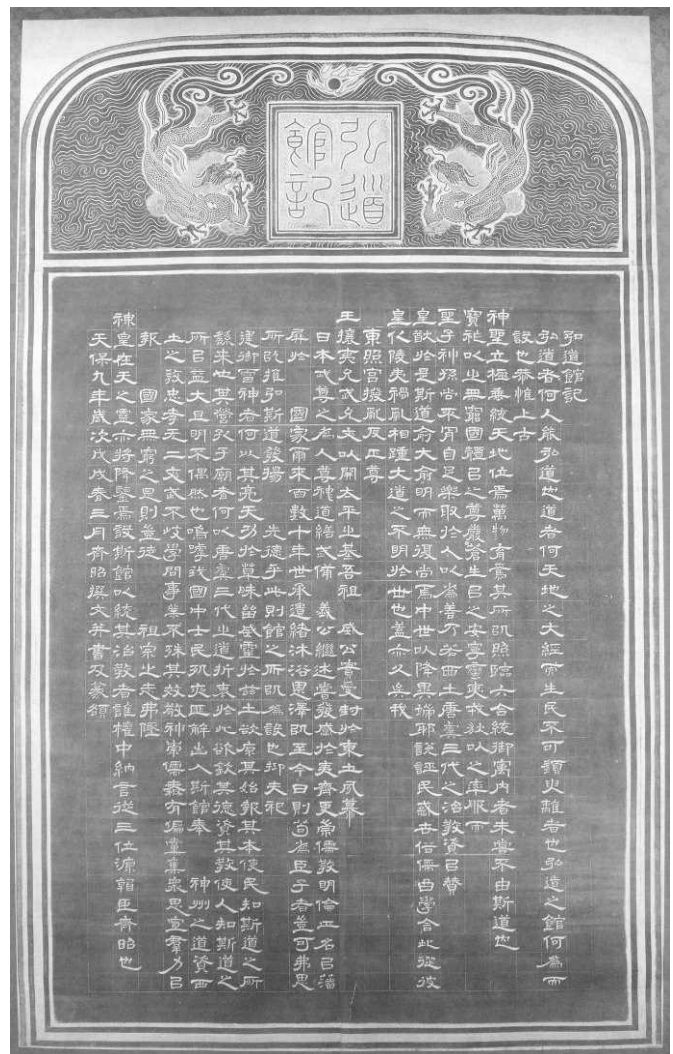 弘道
館記
弘道館記
弘道者何人能弘道也道者何天地之大經而生民不可須臾離者也弘道之館何爲而
設也恭惟上古
神聖立極垂統天地位焉萬物育焉其所以照臨六合統御寓內者未嘗不由斯道也
寶祚以之無窮國體以之尊嚴蒼生以之安寧蠻夷戎狄以之率服而
聖子神孫尚不肯自足樂取於人以爲善乃若西土唐虞三代之治敎資以贊
皇猷於是斯道兪大兪明而無復尚焉中世以降異端邪說誣民惑世俗儒曲學舍此從彼
皇化陵夷禍亂相踵大道之不明於世也蓋亦久矣我
東照宮撥亂反正尊
王攘夷允武允文以開太平之基吾祖　威公實受封於東土夙慕
日本武尊之爲人尊神道繕武備　義公繼述嘗發感於夷齊更崇儒敎明倫正名以藩
屏於　國家爾來百數十年世承遺緖沐浴恩澤以至今日則苟爲臣子者豈可弗思
所以推弘斯道發揚　先德乎此則館之所以爲設也抑夫祀
建御雷神者何以其亮天功於草昧留威靈於茲土欲原其始報其本使民知斯道之所
繇來也其營孔子廟者何以唐虞三代之道折衷於此欲欽其德資其敎使人知斯道之
所以益大且明不偶然也嗚呼我國中士民夙夜匪解出入斯館奉　神州之道資西
土之敎忠孝无二文武不岐學問事業不殊其效敬神崇儒無有偏黨集衆思宣羣力以
報　國家無窮之恩則豈徒　祖宗之志弗墜
神皇在天之靈亦將降鑒焉設斯館以統其治敎者誰權中納言從三位源朝臣齊昭也
天保九年歲次戊戌春三月齊昭撰文幷書及篆額